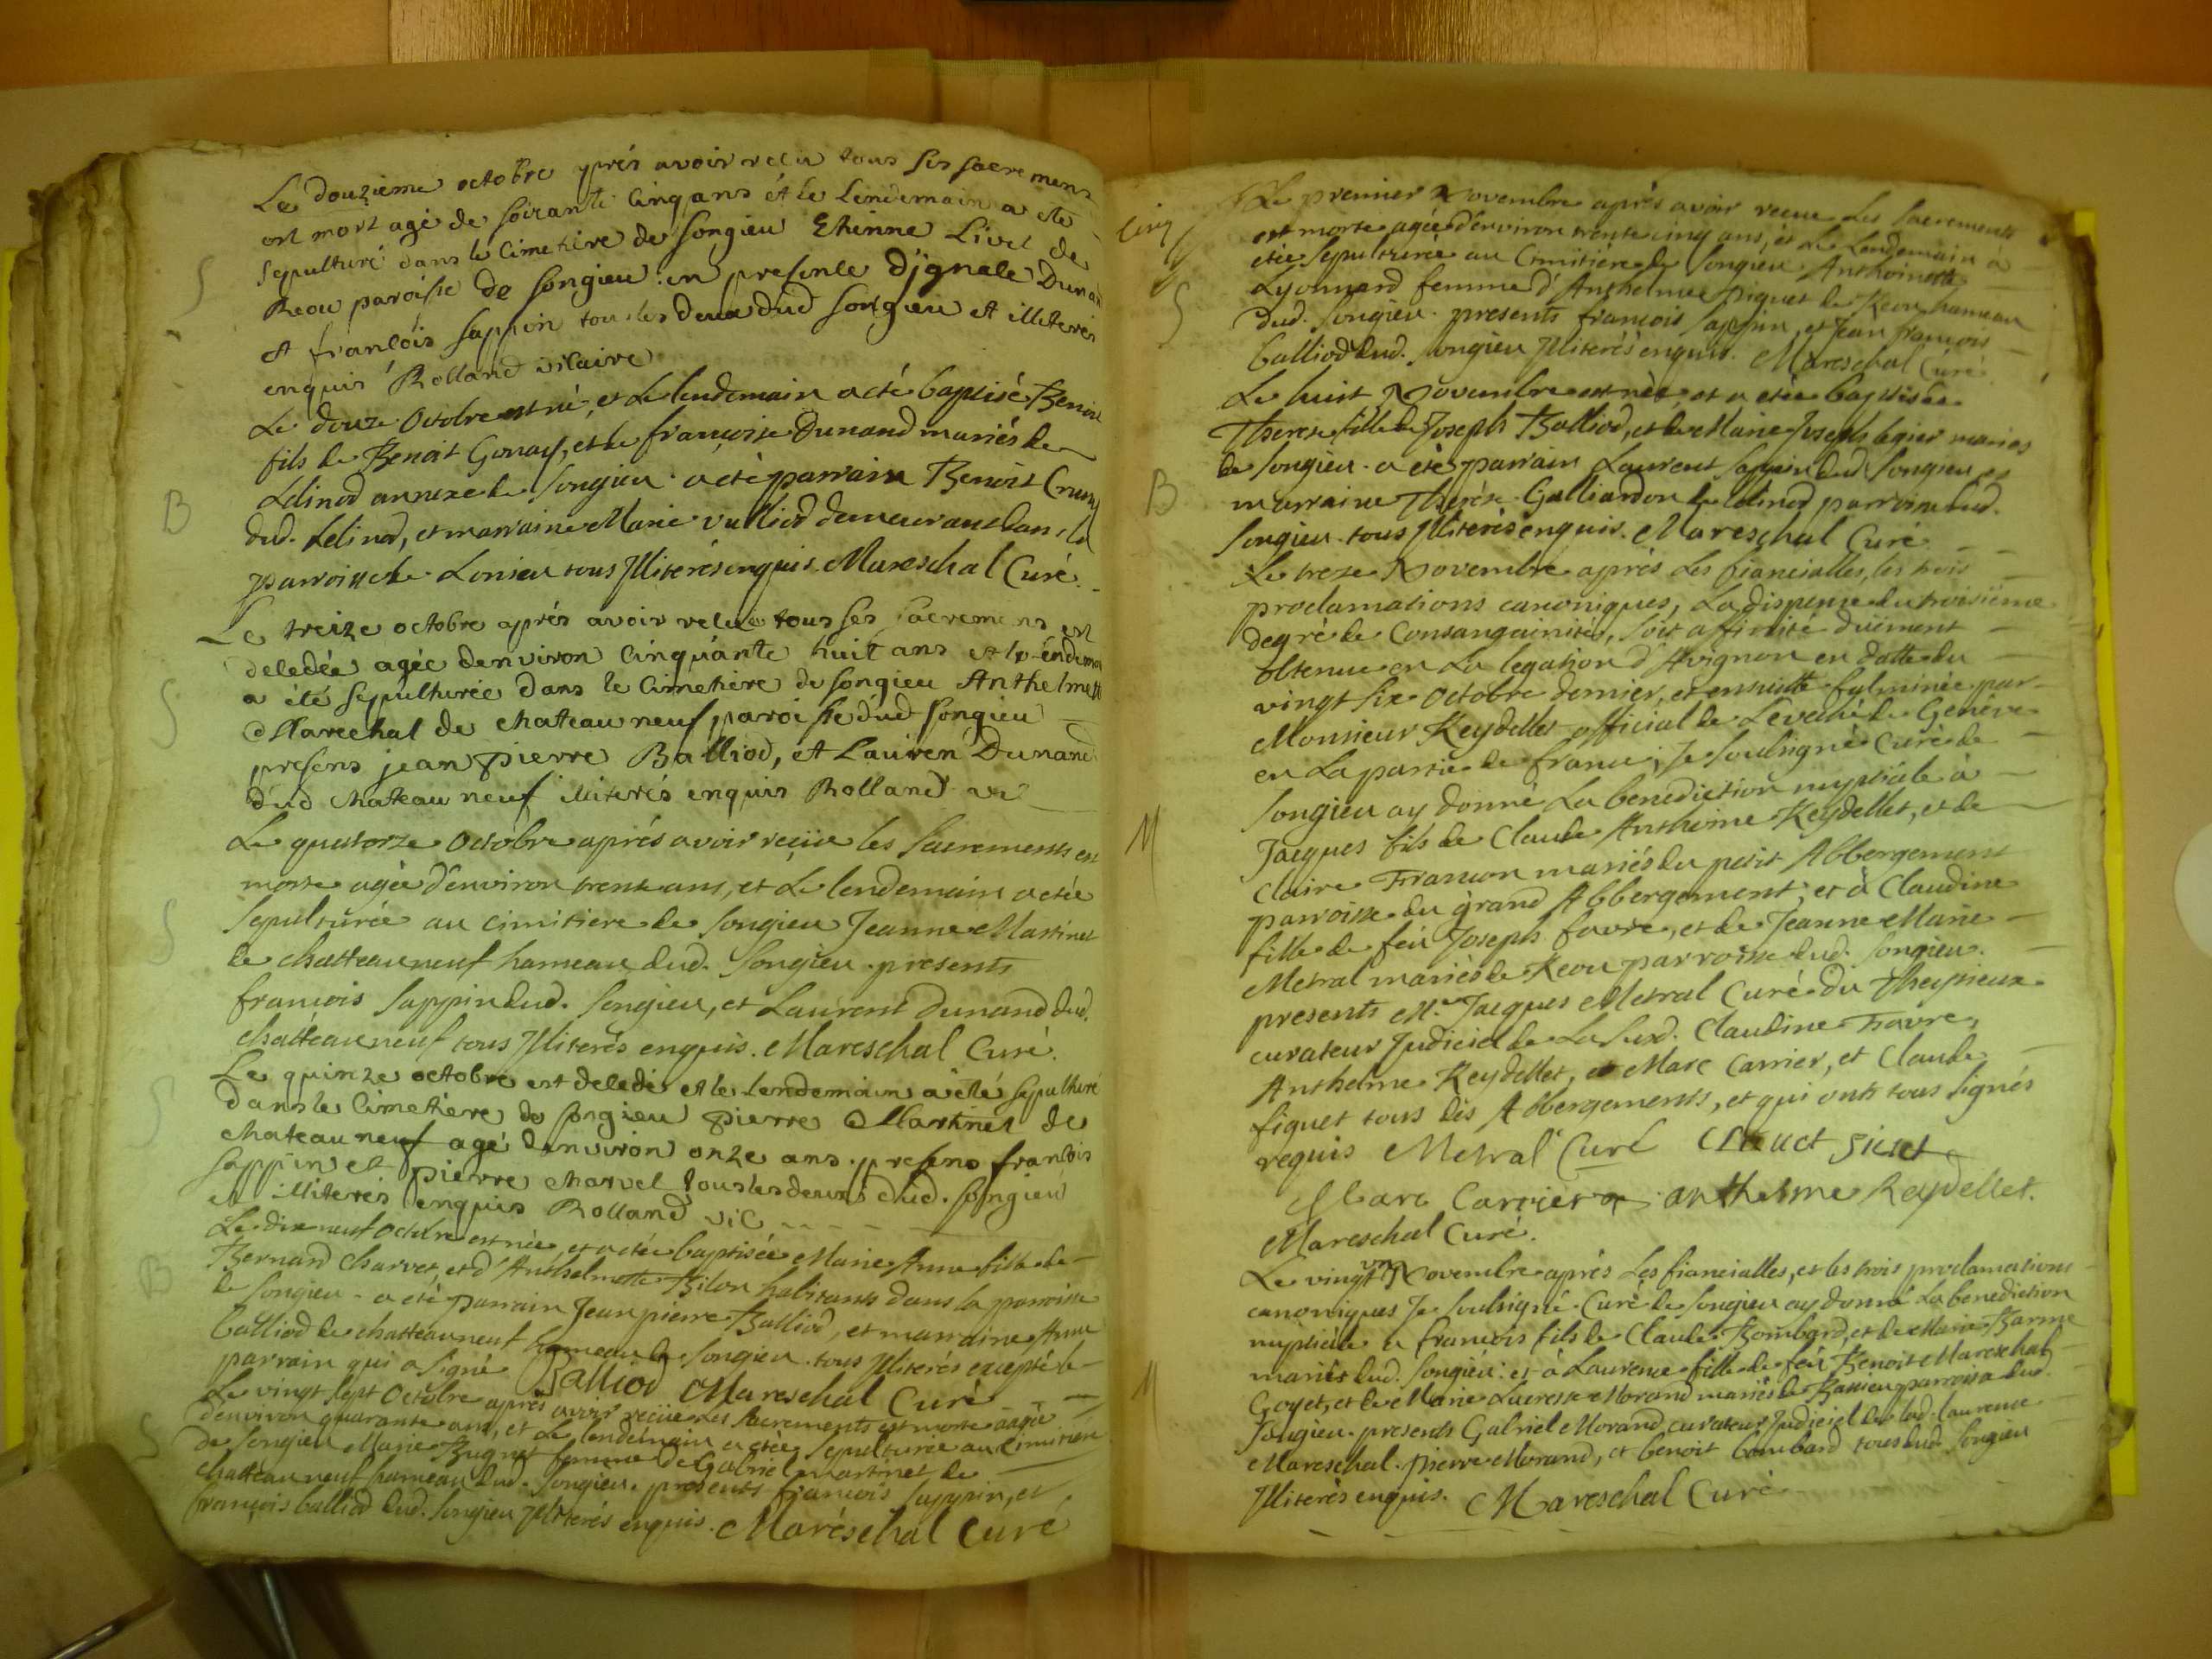 Le douzieme octobre aprés avoir recu tous ses sacremens
est mort agé de soixante cinq ans et le lendemain a ete
S
sepulturé dans le cimetiere de songieu Etienne Livet de
Reou paroisse de songieu en presence d'jgnace Dunand
et francois sappin tous les deux dud songieu et illiterés
enquis Rolland vicaire
Le douze Octobre est né, et le lendemain a eté baptisé Benoit
fils de Benoit Gonay, et de francoise Dunand mariés de
B
Lilinod annexe de Songieu a eté parrain Benoit
dud. Lilinod, et marraine Marie vulliod demeurant dans la
parroisse de Lonieu tous Illiterés enquis. Mareschal Curé.
Le treize octobre aprés avoir recu tous ses sacremens est
decedée agée denviron cinquante huit ans et le lendemain
S
a été sepulturée dans le cimetiere de songieu Anthelmette
Marechal de chateauneuf paroisse dud songieu
presens jean pierre Balliod, et Lauren Dunand
dud chateau neuf illiterés enquis Rolland vic
Le quatorze Octobre aprés avoir reciie les Sacrements est
morte agée d'environ trente ans, et Le lendemain a etée
S
Sepulturée au cimitiere de Songieu Jeanne Martinet
de chatteauneuf hameau dud. Songieu. presents
francois Sappin dud. Songieu, et Laurent Dunand dud.
chatteauneuf tous Illiterés enquis. Mareschal Curé.
Le quinze octobre est decedé et le lendemain a été sepulturé
S
dans le cimetiere de songieu pierre Martinet de
chateauneuf agé denviron onze ans. presens francois
sappin et pierre charvet tous les deux dud. songieu
et illiterés enquis Rolland vic
Le dix neuf Octobre est née, et a etée baptisée Marie Anne fille de
B
Bernard Charvet, et d'Anthelmette Bilon habitants dans la parroisse
de Songieu. a eté parrain Jean pierre Balliod, et marraine Anne
balliod de chatteauneuf hameau de Songieu. tous Illiterés excepté le
parrain qui a signé Balliod Mareschal Curé
Le vingt sept Octobre aprés avoir reciie Les Sacrements est morte agée
S
d'environ quarante ans, et Le lendemain a etée Sepulturée au Cimitiere
de Songieu Marie Bugnet femme de Gabriel Martinet de
chatteauneuf hameau dud. Songieu. presents francois Sappin, et
francois balliod dud. Songieu Illiterés enquis. Mareschal Curé
Cinq
Le premier Novembre aprés avoir recue Les Sacrements
est morte agée d'environ trente cinq ans, et Le Lendemain a
etée Sepulturée au Cimitiere de Songieu Anthoinette
S
Lyonnard femme d'Anthelme Piquet de Reou hameau
dud. Songieu. presents francois Sappin, et Jean francois
balliod dud. Songieu Illiterés enquis. Mareschal Curé
Le huit Novembre est née et a etée baptisée
Therese fille de Joseph Balliod, et de Marie Joseph legier mariés
B
de Songieu. a été parrain Laurent Sappin dud Songieu, et
marraine Therése Galliardon de Lilinod parroisse dud.
Songieu. tous Illiterés enquis. Mareschal Curé
Le treze Novembre aprés Les fiancialles, les trois
proclamations canoniques, La dispense du troisieme
degré de Consanguinité, soit affinité düement
obtenue en La legation d'Avignon en datte du
vingt six Octobre dernier, et ensuitte fulminée par
Monsieur Reydellet official de L'eveché de Genéve
en La partie de france, Je soussigné Curé de
M
Songieu ay donné La benediction nuptiale à
Jacques fils de Claude Anthoine Reydellet, et de
Claire Francon mariés du petit Abbergement
parroisse du grand Abbergement, et à Claudine
fille de feu Joseph favre, et de Jeanne Marie
Metral mariés de Reou parroisse dud. Songieu.
presents Mr. Jacques Metral Curé du Theyzieux
curateur Judiciel de La Susd. Claudine Favre,
Anthelme Reydellet, et Marc Carrier, et Claude
figuet tous dès Abbergements, et qui onts tous signés
requis Metral Curé
Marc Carrier anthelme Reydellet.
Mareschal Curé.
Le vingt un Novembre aprés Les fiancialles, et les trois proclamations
canoniques Je soussigné Curé de Songieu ay donné La benediction
nuptiale a francois fils de Claude Bombard, et de Marie Barme
M
mariés dud. Songieu: et à Laurence fille de feu Benoit Mareschal
Goyet, et de Marie Lucresse Morand mariés de Bassieu parroisse dud
Songieu. presents Gabriel Morand curateur Judiciel de lad. laurence
Mareschal. pierre Morand, et benoit bombard tous dud Songieu
Illiterés enquis. Mareschal Curé